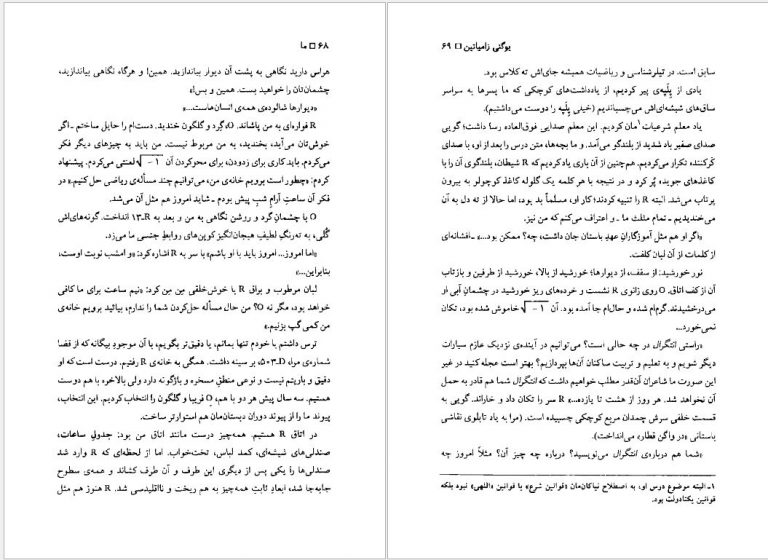 ۶۸ □ ما
هراس دارید نگاهی به پشت آن دیوار بیاندازید. همین! و هرگاه نگاهی بیاندازید،
چشمان‌تان را خواهید بست. همین و بس!»
«دیوارها شالوده‌ی همه‌ی انسان‌هاست...»
R فواره‌ای به من پاشاند. O، گِرد و گلگون خندید. دست‌ام را حایل ساختم ـ اگر
خوش‌تان می‌آید، بخندید، به من مربوط نیست. من باید به چیزهای دیگر فکر
می‌کردم. باید کاری برای زدودن، برای محوکردن آن √−۱ لعنتی می‌کردم. پیشنهاد
کردم: «چطور است برویم خانه‌ی من، می‌توانیم چند مسأله‌ی ریاضی حل کنیم.» در
فکر آن ساعتِ آرامِ شبِ پیش بودم ـ شاید امروز هم مثل آن می‌شد.
O با چشمانِ گرد و روشن نگاهی به من و بعد به R-۱۳ انداخت. گونه‌های‌اش
گُلی، به ته‌رنگِ لطیفِ هیجان‌انگیز کوپن‌های روابطِ جنسی ما می‌زد.
«اما امروز... امروز باید با او باشم.» با سر به R اشاره کرد: «و امشب نوبت اوست،
بنابراین...»
لبان مرطوب و براق R با خوش‌خلقی من من کرد: «نیم ساعت برای ما کافی
خواهد بود، مگر نه O؟ من حال مسأله حل‌کردن شما را ندارم، بیائید برویم خانه‌ی
من کمی گپ بزنیم.»
ترس داشتم با خودم تنها بمانم، یا دقیق‌تر بگویم، با آن موجودِ بیگانه که از قضا
شماره‌ی مرا، D-۵۰۳، بر سینه داشت. همگی به خانه‌ی R رفتیم. درست است که او
دقیق و باریتم نیست و نوعی منطق مسخره و باژگونه دارد ولی بالاخره با هم دوست
هستیم. سه سال پیش هر دو با هم، O فریبا و گلگون را انتخاب کردیم. این انتخاب،
پیوند ما را از پیوند دوران دبستان‌مان هم استوارتر ساخت.
در اتاق R هستیم. همه‌چیز درست مانند اتاق من بود: جدولِ ساعات،
صندلی‌های شیشه‌ای، کمد لباس، تخت‌خواب. اما از لحظه‌ای که R وارد شد
صندلی‌ها را یکی پس از دیگری این طرف و آن طرف کشاند و همه‌ی سطوح
جابه‌جا شد، ابعادِ ثابتِ همه‌چیز به هم ریخت و نااقلیدسی شد. R هنوز هم مثل
یوگنی زامیاتین □ ۶۹
سابق است. در تیلرشناسی و ریاضیات همیشه جای‌اش ته کلاس بود.
یادی از پِلْیه‌ی پیر کردیم، از یادداشت‌های کوچکی که ما پسرها به سراسر
ساق‌های شیشه‌ای‌اش می‌چسباندیم (خیلی پِلْیه را دوست می‌داشتیم).
یاد معلم شرعیات۱مان کردیم. این معلم صدایی فوق‌العاده رسا داشت؛ گویی
صدای صفیر باد شدید از بلندگو می‌آمد. و ما بچه‌ها، متن درس را بعد از او، با صدای
کَرکننده تکرار می‌کردیم. هم‌چنین از آن باری یاد کردیم که R شیطان، بلندگوی آن را با
کاغذهای جویده پُر کرد و در نتیجه با هر کلمه یک گلوله کاغذ کوچولو به بیرون
پرتاب می‌شد. البته R را تنبیه کردند؛ کار او، مسلماً بد بود، اما حالا از ته دل به آن
می‌خندیدیم ـ تمام مثلث ما ـ و اعتراف می‌کنم که من نیز.
«اگر او هم مثل آموزگارانِ عهدِ باستان جان داشت، چه؟ ممکن بود...» ـ افشانه‌ای
از کلمات از آن لبان کلفت.
نور خورشید: از سقف، از دیوارها؛ خورشید از بالا، خورشید از طرفین و بازتاب
آن از کف اتاق. O روی زانوی R نشست و خرده‌های ریز خورشید در چشمانِ آبی او
می‌درخشیدند. گرم‌ام شده و حال‌ام جا آمده بود. آن √−۱ خاموش شده بود، تکان
نمی‌خورد...
«راستی انتگرال در چه حالی است؟ می‌توانیم در آینده‌ی نزدیک عازم سیارات
دیگر شویم و به تعلیم و تربیت ساکنان آن‌ها بپردازیم؟ بهتر است عجله کنید در غیر
این صورت ما شاعران آن‌قدر مطلب خواهیم داشت که انتگرال شما هم قادر به حمل
آن نخواهد شد. هر روز از هشت تا یازده...» R سر را تکان داد و خاراند. گویی به
قسمت خلفی سرش چمدان مربع کوچکی چسبیده است. (مرا به یاد تابلوی نقاشی
باستانی «در واگن قطار» می‌انداخت).
«شما هم درباره‌ی انتگرال می‌نویسید؟ درباره چه چیز آن؟ مثلاً امروز چه
۱ـ البته موضوع درس او، به اصطلاح نیاکان‌مان «قوانین شرع» یا قوانین «اللهی» نبود بلکه
قوانین یکتادولت بود.